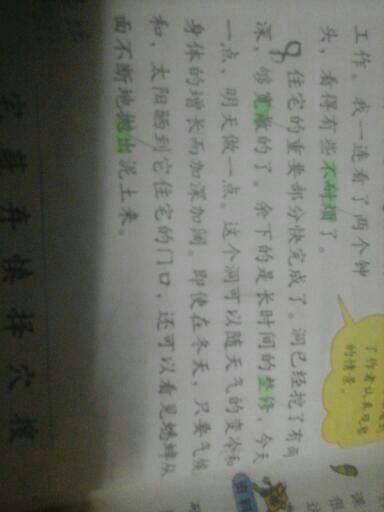 工作。我一连看了两个钟
头，看得有些不耐烦了。
9
住宅的重要部分快完成了。洞已经挖了有两
深，够宽敞的了。余下的是长时间的整修，今天
一点，明天做一点。这个洞可以随天气的变冷和
身体的增长而加深加阔。即使在冬天，只要气候
和，太阳晒到它住宅的门口，还可以看见蟋蟀从
面不断地抛出泥土来。
了作者认真观察
的情景。
宅 弃 慎 择 穴 搜